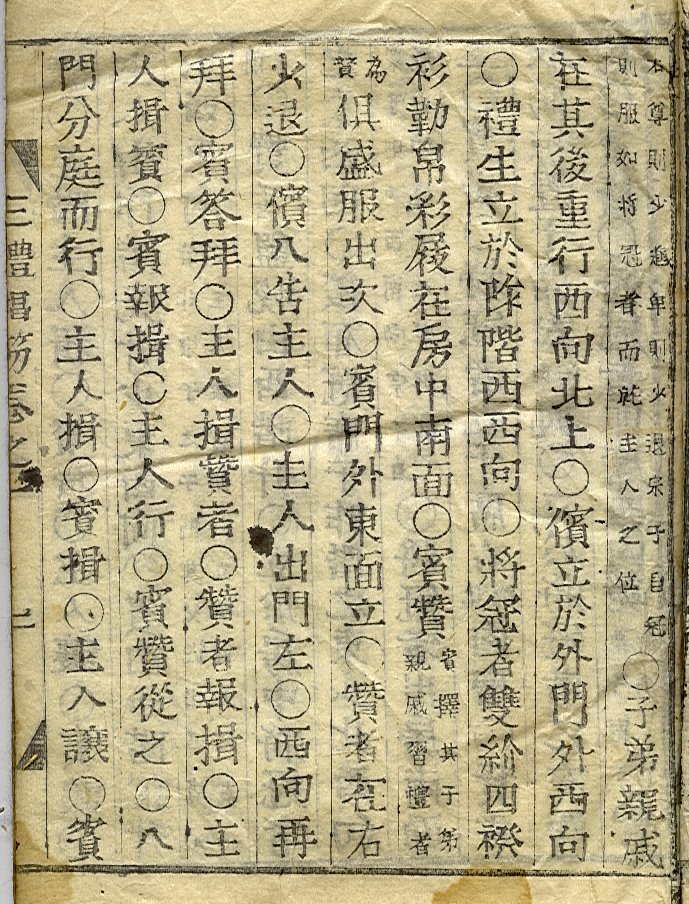 右尊則少進卑則少退宗子自冠
則服如將冠者而就主人之位
○子弟親戚
在其後重行西向北上○儐立於外門外西向
○禮生立於阼階西西向○將冠者雙紒四䙆
衫勒帛彩屐在房中南面○賓贊
賓擇其子弟
親戚習禮者
為
贊
俱盛服出次○賓門外東面立○贊者在右
少退○儐入告主人○主人出門左○西向再
拜○賓答拜○主人揖贊者○贊者報揖○主
人揖賓○賓報揖○主人行○賓贊從之○入
門分庭而行○主人揖○賓揖○主人讓○賓
三禮
笏卷之